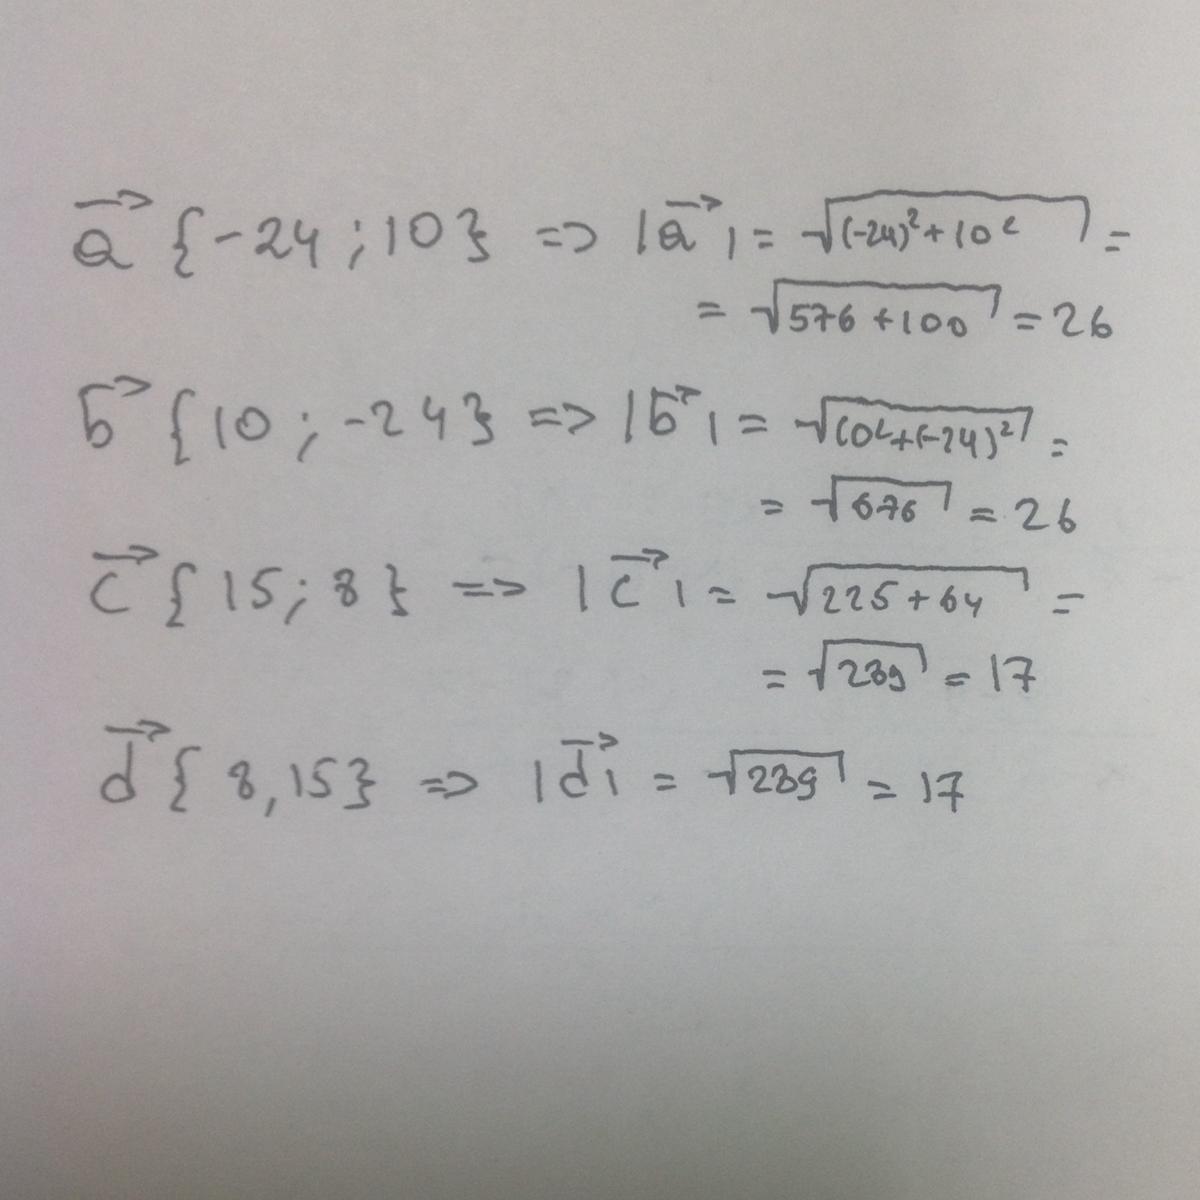 a⃗ {-24 ; 10} => |a⃗| = √((-24)² + 10²) =
= √(576 + 100) = 26
b⃗ {10 ; -24} => |b⃗| = √(10² + (-24)²) =
= √676 = 26
c⃗ {15 ; 8} => |c⃗| = √(225 + 64) =
= √289 = 17
d⃗ {8, 15} => |d⃗| = √289 = 17